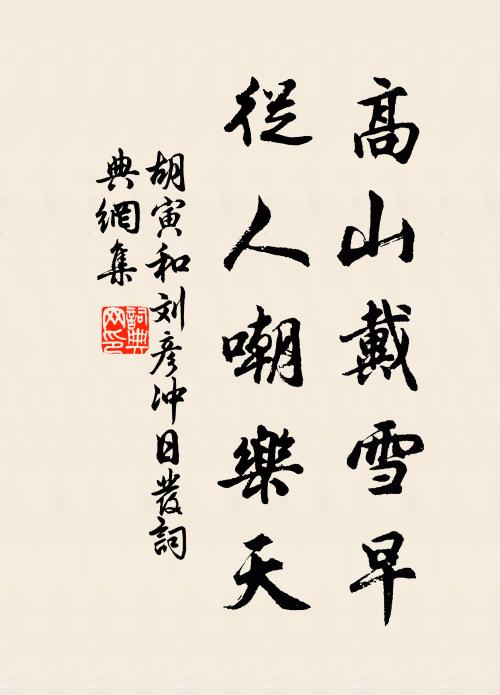 高山戴雪早
從人嘲樂天
胡寅和刘彦冲日發詞
典網集
詞典
网印